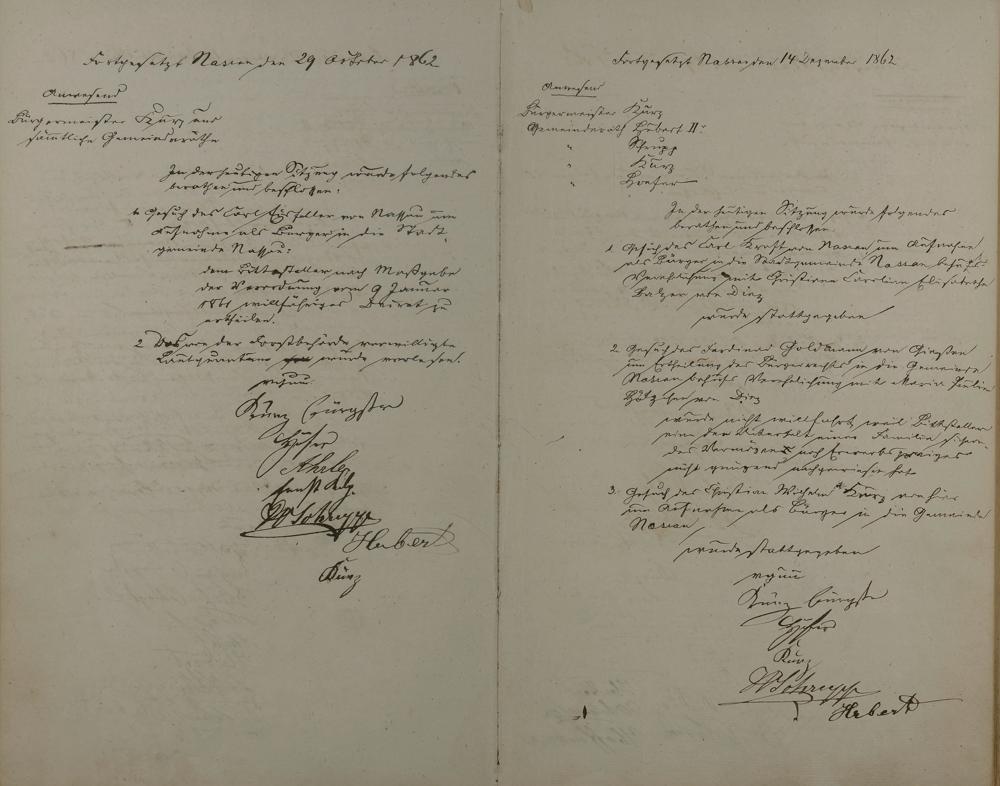 Fortgesetzt Nassau den 29 October 1862
Anwesend
Bürgermeister Kurz und
sämtliche Gemeinderäthe
In der heutigen Sitzung wurde folgendes
berathen und beschlossen:
1. Gesuch des Carl von Nassau um
Aufnahme als Bürger in die Stadt-
gemeinde Nassau:
dem Bittsteller nach Maßgabe
der Verordnung vom 9 Januar
1861 willfähriges Decret zu
ertheilen.
2 Das von der Forstbehörde verwilligte
wurde verlesen.
Kurz Bürgstr
Hofer
Ernst
Schrupp
Herbert
Kurz
Fortgesetzt Nassau den 14 Dezember 1862
Anwesend
Bürgermeister Kurz
Gemeinderäth Herbert II
" Schrupp
" Kurz
" Hoefer
In der heutigen Sitzung wurde folgendes
berathen und beschlossen
1 Gesuch des Carl Kraft von Nassau um Aufnahme
als Bürger in die Stadtgemeinde Nassau behufs
Verehelichung mit Christiane Caroline Elisabetha
Balzer von Diez
wurde stattgegeben
2. Gesuch des Ferdinand Goldmann von Gießen
um Ertheilung des Bürgerrechts in die Gemeinde
Nassau behufs Verehelichung mit Maria
von Diez
wurde nicht willfahrt, weil Bittsteller
eine den Unterhalt einer Familie
des Vermögens noch Erwerbszweiges
nicht genügend nachgewiesen hat
3. Gesuch des Christian Wilhelm Kurz von hier
um Aufnahme als Bürger in die Gemeinde
Nassau
wurde stattgegeben
Kurz Bürgstr
Hofer
Kurz
Schrupp
Herbert